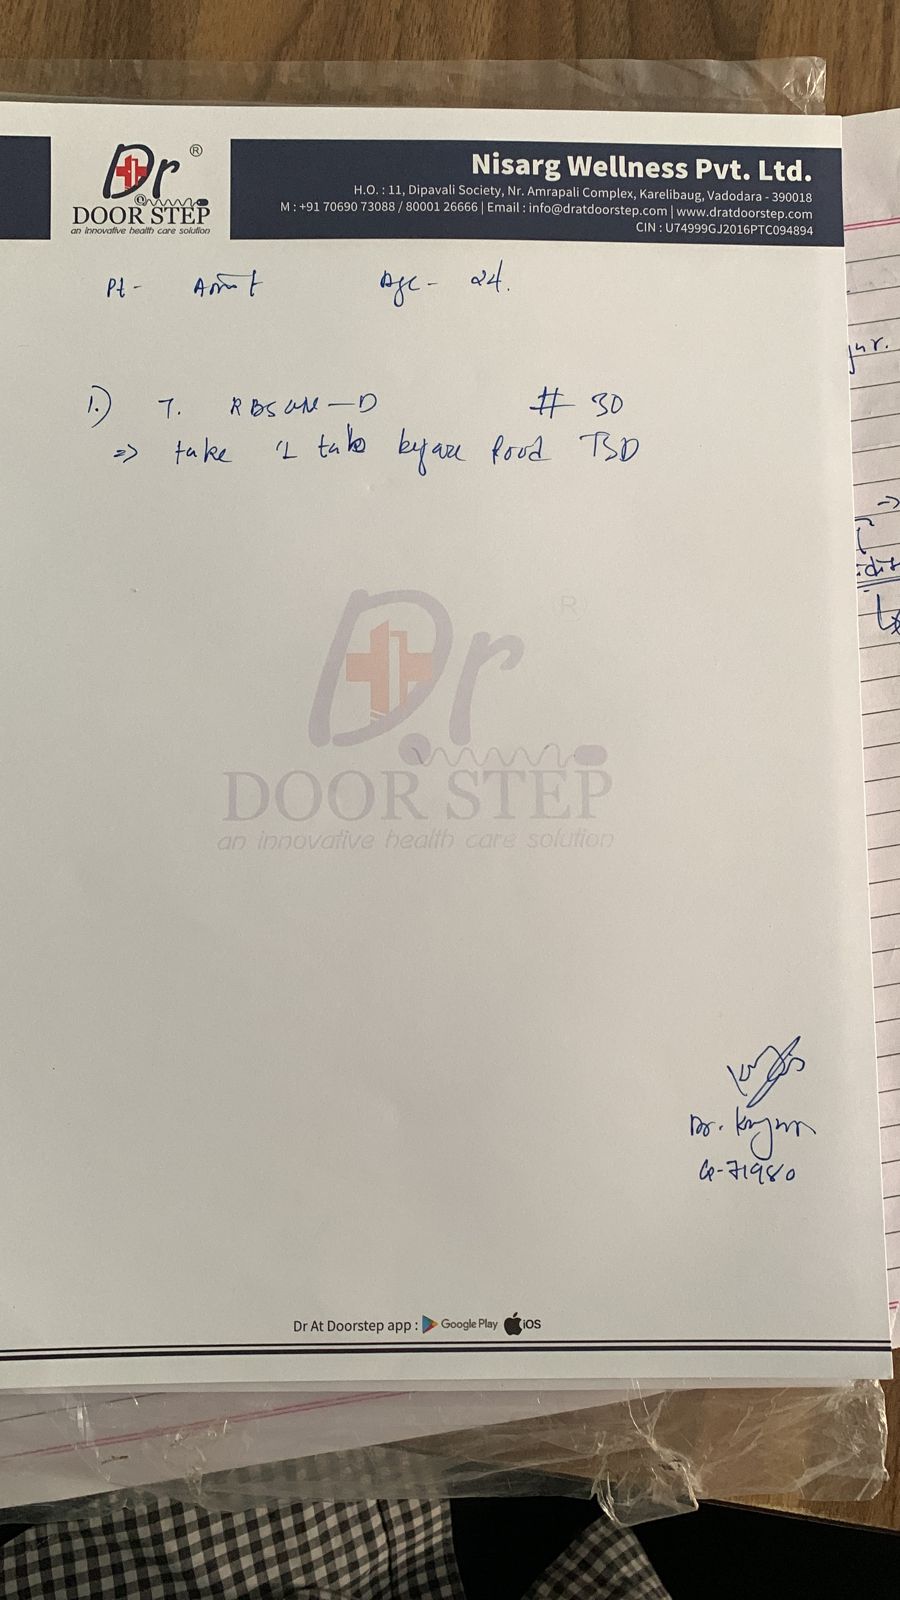 Dr ®
DOOR STEP
an innovative health care solution
Nisarg Wellness Pvt. Ltd.
H.O. : 11, Dipavali Society, Nr. Amrapali Complex, Karelibaug, Vadodara - 390018
M : +91 70690 73088 / 80001 26666 | Email : info@dratdoorstep.com | www.dratdoorstep.com
CIN : U74999GJ2016PTC094894
Pt - Age - 24.
1.) T. - D # 30
⇒ take 1 tab food
Dr ®
DOOR STEP
an innovative health care solution
Dr.
G-71980
Dr At Doorstep app : Google Play iOS